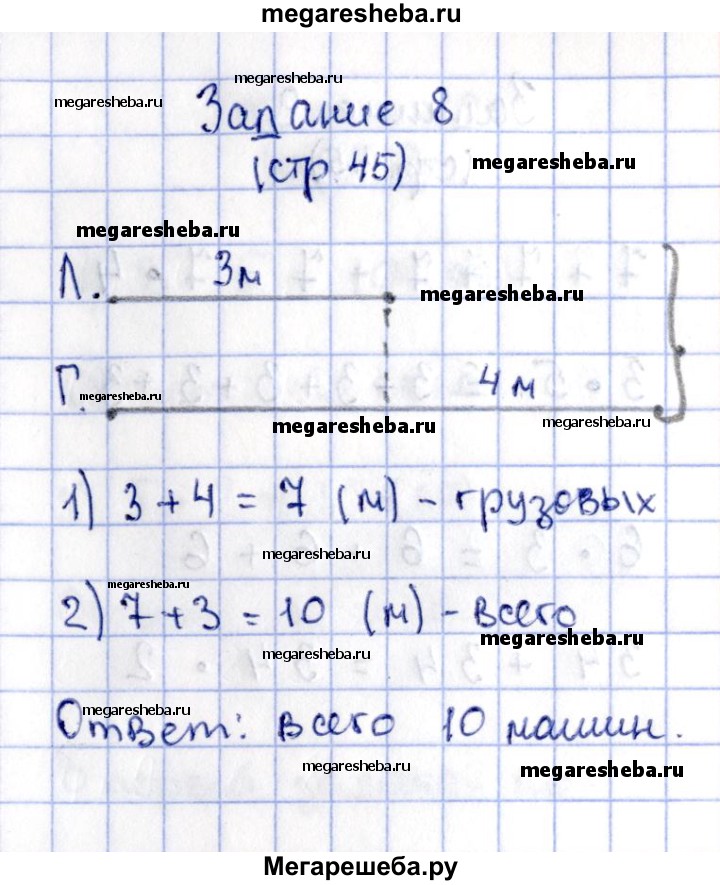 megaresheba.ru
megaresheba.ru
megaresheba.ru
Задание 8
(стр. 45)
megaresheba.ru
megaresheba.ru
Л. 3м
megaresheba.ru
Г. 4 м
megaresheba.ru
megaresheba.ru
megaresheba.ru
1) 3 + 4 = 7 (м) - грузовых
megaresheba.ru
megaresheba.ru
2) 7 + 3 = 10 (м) - всего
megaresheba.ru
megaresheba.ru
megaresheba.ru
Ответ: всего 10 машин.
megaresheba.ru
megaresheba.ru
Мегарешеба.ру